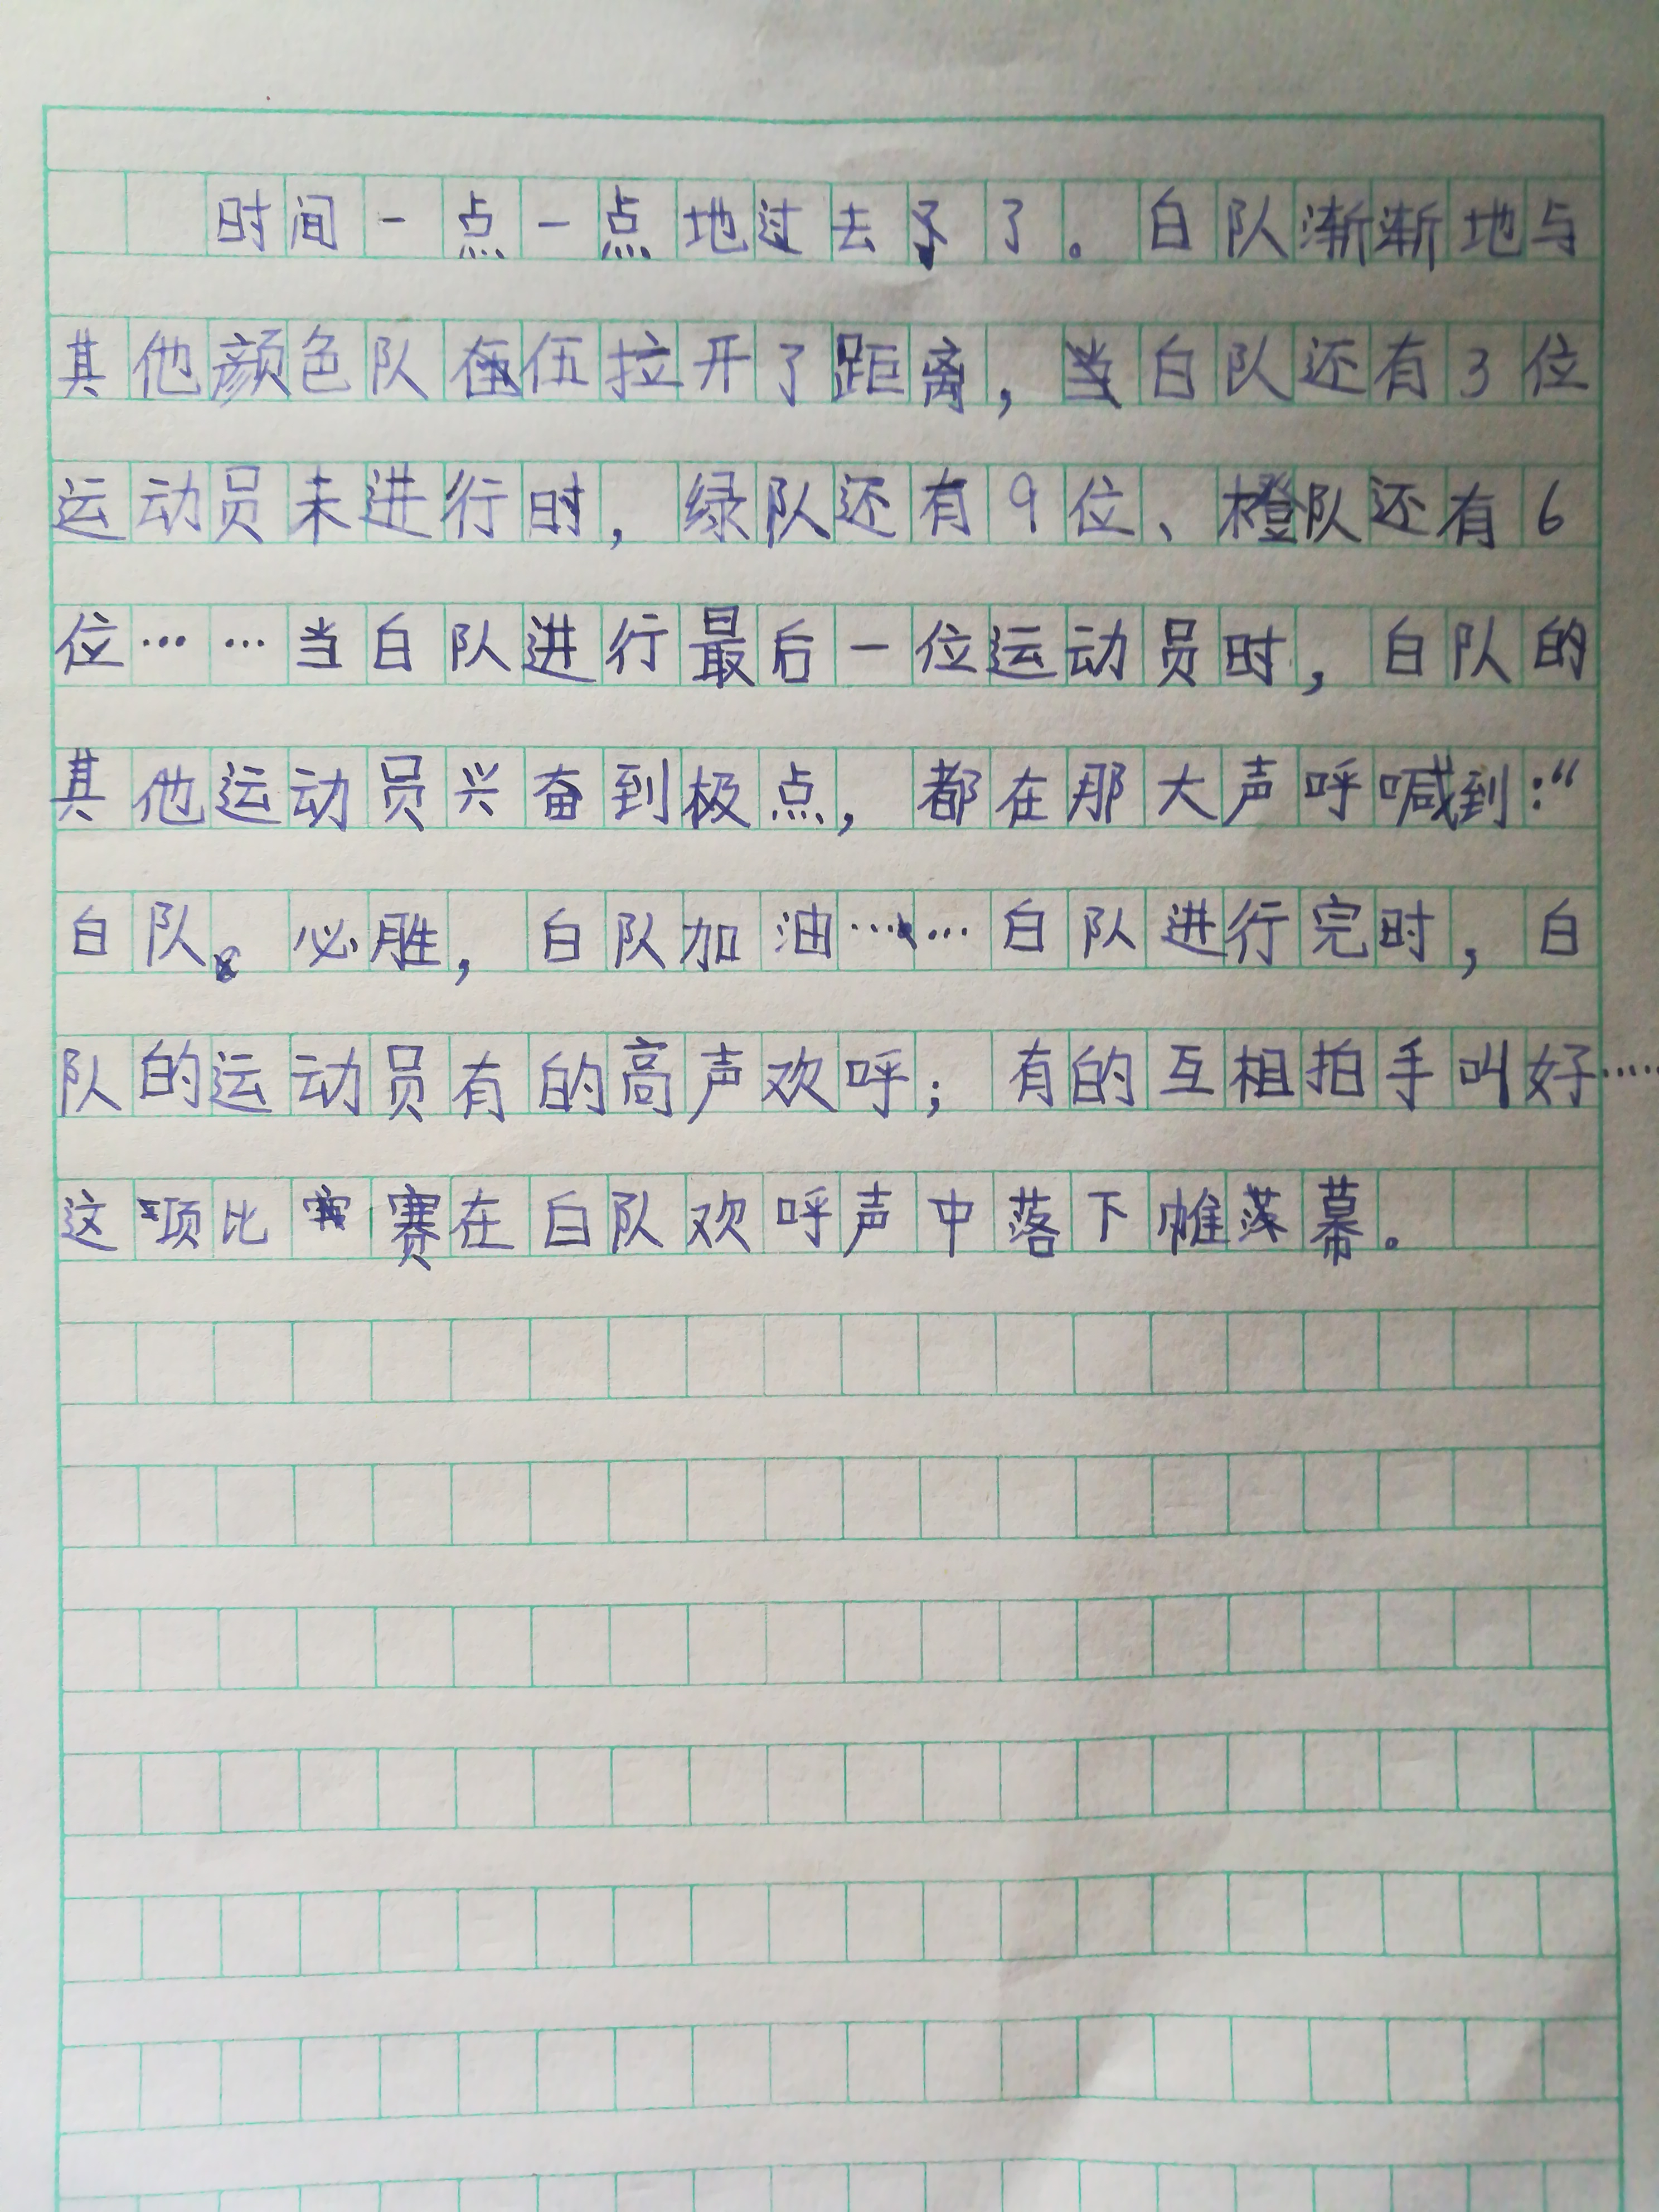 时间一点一点地过去了。白队渐渐地与
其他颜色队伍拉开了距离，当白队还有3位
运动员未进行时，绿队还有9位、橙队还有6
位……当白队进行最后一位运动员时，白队的
其他运动员兴奋到极点，都在那大声呼喊到：“
白队必胜，白队加油……白队进行完时，白
队的运动员有的高声欢呼；有的互相拍手叫好……
这项比赛在白队欢呼声中落下帷幕。